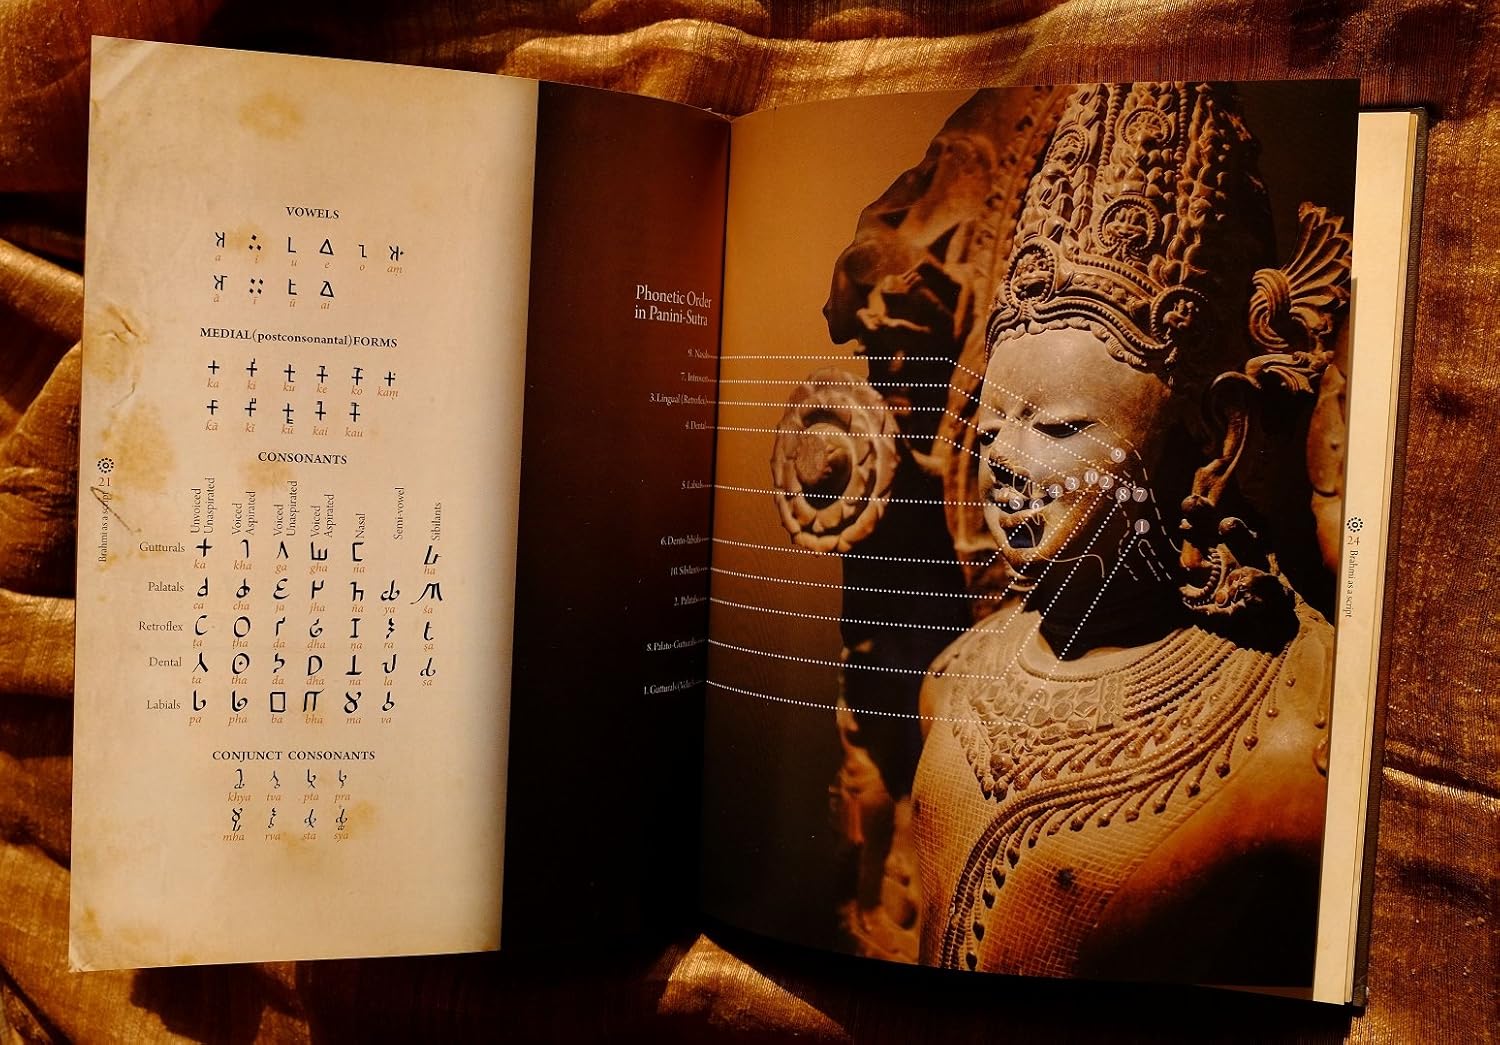 VOWELS
𑀅 𑀇 𑀉 𑀏 𑀑 𑀅𑀁
a i u e o aṃ
𑀆 𑀈 𑀊 𑀐
ā ī ū ai
MEDIAL(postconsonantal)FORMS
𑀓 𑀓𑀺 𑀓𑀼 𑀓𑁂 𑀓𑁄 𑀓𑀁
ka ki ku ke ko kaṃ
𑀓𑀸 𑀓𑀻 𑀓𑀽 𑀓𑁃 𑀓𑁅
kā kī kū kai kau
CONSONANTS
Unvoiced Unaspirated
Voiced Aspirated
Voiced Unaspirated
Voiced Aspirated
Nasal
Semi-vowel
Sibilants
Gutturals 𑀓 𑀔 𑀕 𑀖 𑀗 𑀳
ka kha ga gha na ha
Palatals 𑀘 𑀙 𑀚 𑀛 𑀜 𑀬 𑀰
ca cha ja jha ña ya śa
Retroflex 𑀝 𑀞 𑀟 𑀠 𑀡 𑀭 𑀱
ṭa ṭha ḍa ḍha ṇa ra ṣa
Dental 𑀢 𑀣 𑀤 𑀥 𑀦 𑀮 𑀲
ta tha da dha na la sa
Labials 𑀧 𑀨 𑀩 𑀪 𑀫 𑀯
pa pha ba bha ma va
CONJUNCT CONSONANTS
𑀔𑁆𑀬 𑀢𑁆𑀯 𑀧𑁆𑀢 𑀧𑁆𑀭
khya tva pta pra
𑀫𑁆𑀳 𑀭𑁆𑀯 𑀲𑁆𑀢 𑀲𑁆𑀬
mha rva sta sya
21
Brahmi as a script
Phonetic Order
in Panini-Sutra
9. Nasals
7.
3. Lingual (Retroflex)
4. Dental
5. Labials
6. Dento-labials
10. Sibilants
2. Palatals
8. Palato-Gutturals
1. Gutturals
9
5 6 4 3 10 2 8 7
1
24
Brahmi as a script